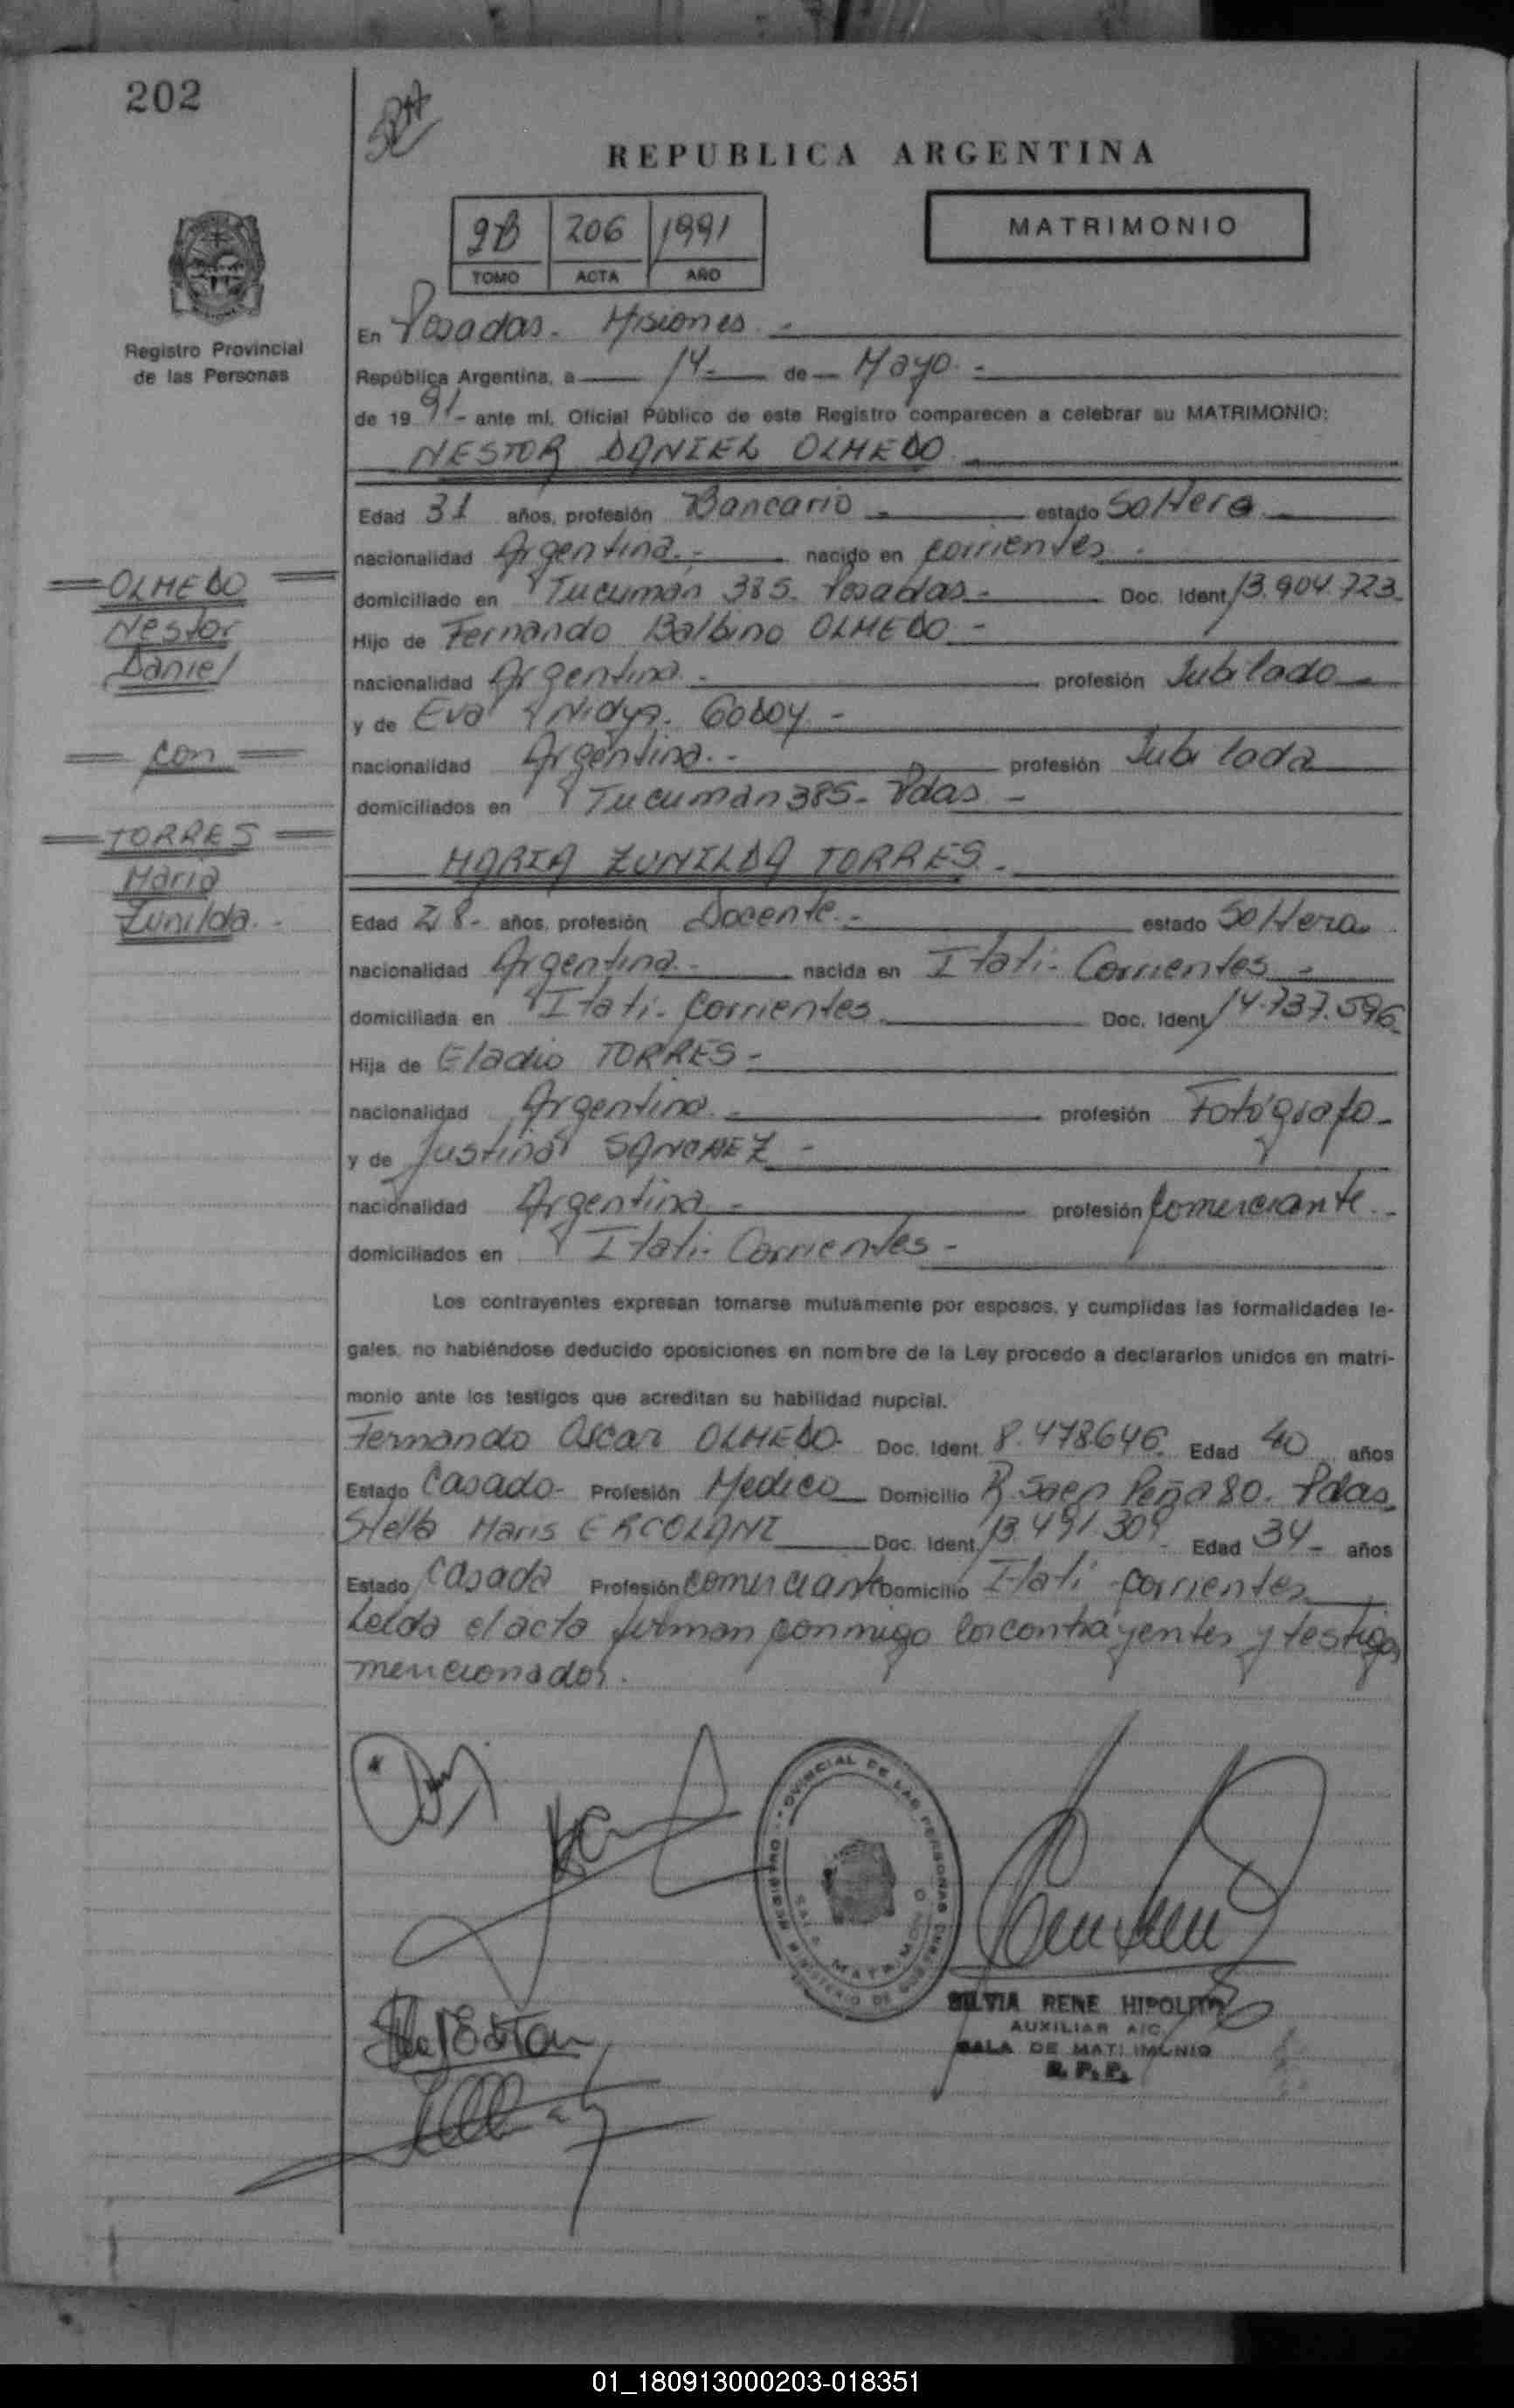 202
REPUBLICA ARGENTINA
2B 206 1991
TOMO ACTA AÑO
MATRIMONIO
Registro Provincial
de las Personas
En Posadas. Misiones.-
República Argentina, a 14- de Mayo.-
de 1991- ante mí, Oficial Público de este Registro comparecen a celebrar su MATRIMONIO:
NESTOR DANIEL OLMEDO.
Edad 31 años, profesión Bancario.- estado Soltero.
nacionalidad Argentina.- nacido en Corrientes.
domiciliado en Tucuman 385. Posadas.- Doc. Ident. 13.904.723.
Hijo de Fernando Balbino OLMEDO.-
nacionalidad Argentina.- profesión Jubilado
y de Eva Nidya. Godoy.-
nacionalidad Argentina.- profesión Jubilada
domiciliados en Tucuman 385- Pdas.-
OLMEDO
Nestor
Daniel
con
TORRES
Maria
Zunilda.-
MARIA ZUNILDA TORRES.
Edad 28- años, profesión Docente.- estado Soltera.
nacionalidad Argentina.- nacida en Itati- Corrientes.-
domiciliada en Itati- Corrientes. Doc. Ident. 14.737.596.
Hija de Eladio TORRES-
nacionalidad Argentina.- profesión Fotógrafo-
y de Justina SANCHEZ-
nacionalidad Argentina.- profesión Comerciante.-
domiciliados en Itati- Corrientes-
Los contrayentes expresan tomarse mutuamente por esposos, y cumplidas las formalidades le-
gales, no habiéndose deducido oposiciones en nombre de la Ley procedo a declararlos unidos en matri-
monio ante los testigos que acreditan su habilidad nupcial.
Fernando Oscar OLMEDO- Doc. Ident. 8.478646. Edad 40 años
Estado Casado- Profesión Medico Domicilio R. Saen Peña 80. Pdas.
Stella Maris ERCOLANI Doc. Ident. 13.491.309- Edad 34- años
Estado Casada Profesión comerciante Domicilio Itati- Corrientes
Leída el acta firman conmigo los contrayentes y testigos
mencionados.
REGISTRO PROVINCIAL DE LAS PERSONAS
MINISTERIO DE GOBIERNO
SALA MATRIMONIO
SILVIA RENE HIPOLITO
AUXILIAR A/C
SALA DE MATRIMONIO
R. P. P.
01_180913000203-018351